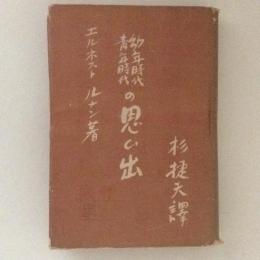 エルネスト ルナン著
幼年時代
青年時代
の思い出
杉捷夫譯